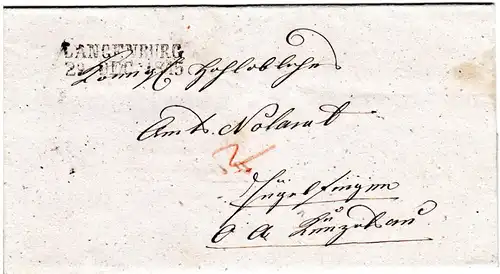 LANGENBURG
29 DEC 1845
Königl Hohlobliche
Amts Notarat
Ingelfingen
O A Künzelsau